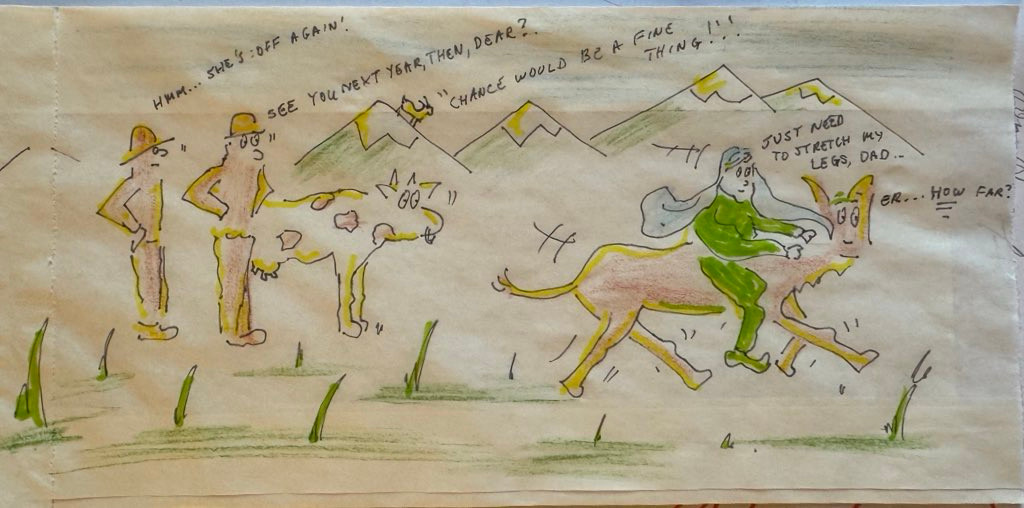 HMM... SHE'S OFF AGAIN!
SEE YOU NEXT YEAR, THEN, DEAR?.
"CHANCE WOULD BE A FINE
THING!!!
JUST NEED
TO STRETCH MY
LEGS, DAD...
ER... HOW FAR?